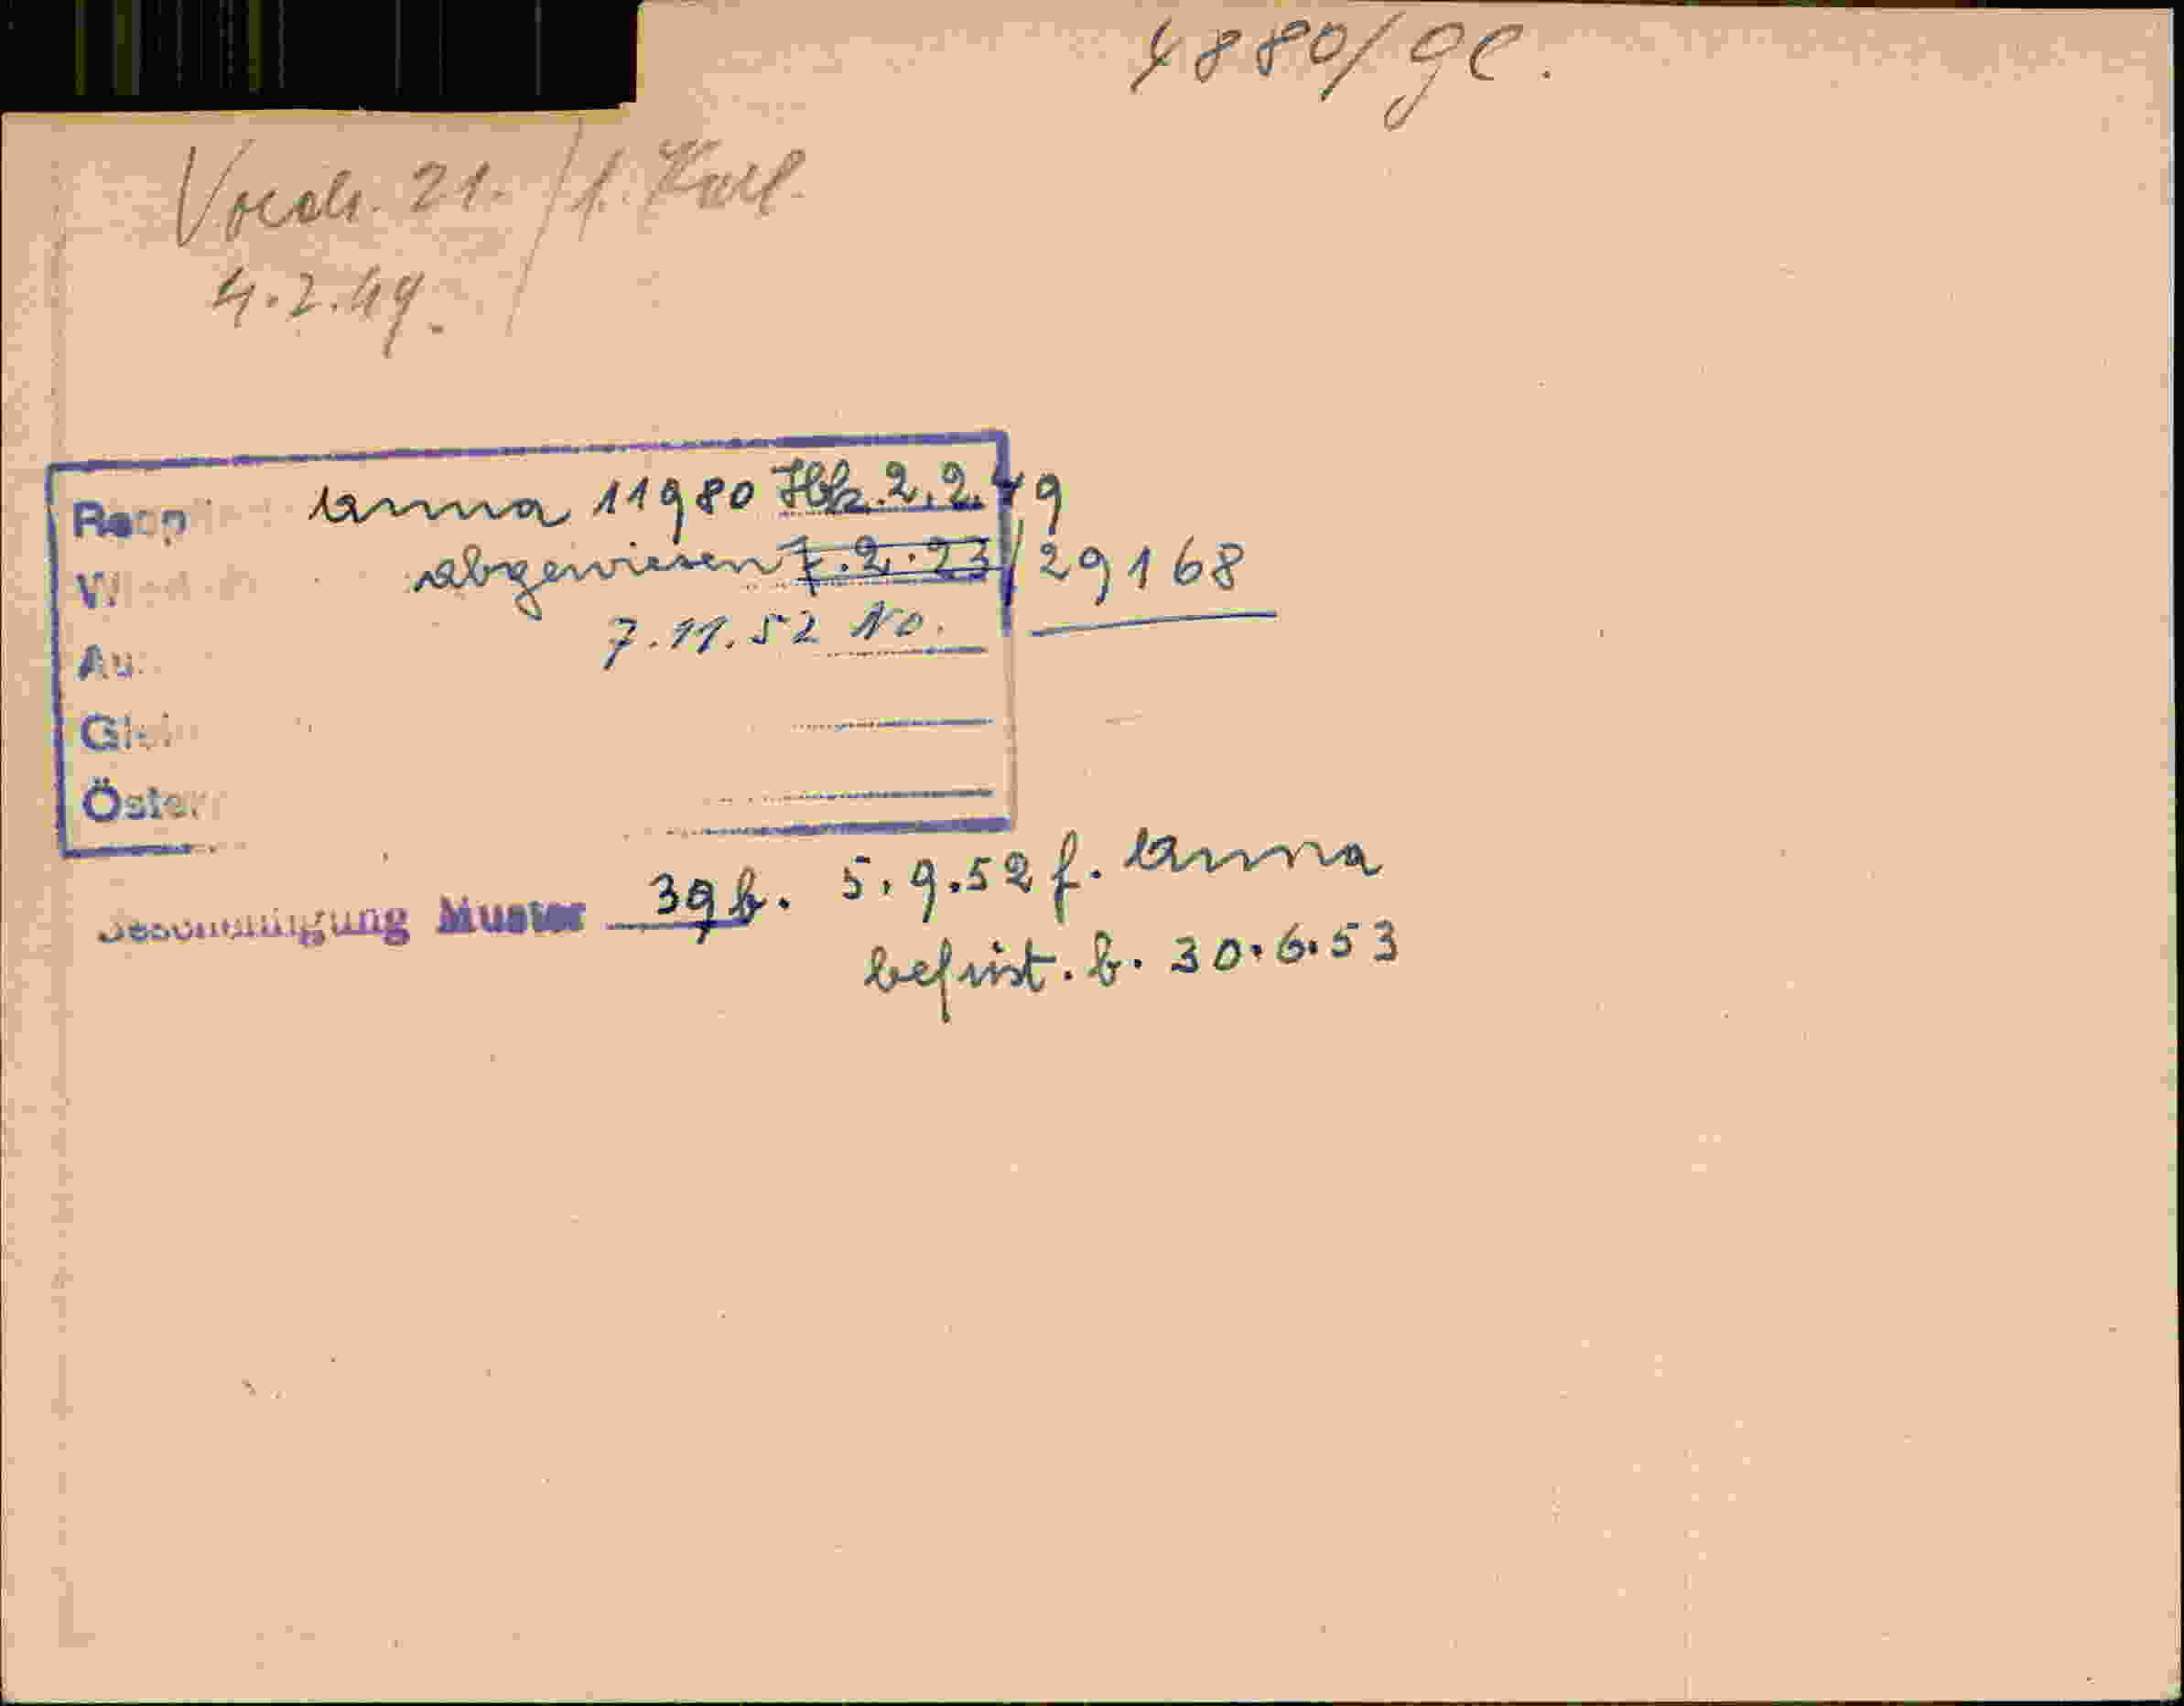 4880/ge.
Vorah. 21. / 1. Karl.
4.2.49.
Rapp Anna 11980 Hbk. 2.2.49
abgewiesen 7.2.23/29168
7.11.52 No.
Au
Öster
Bescheinigung Muster 39 b. 5.9.52 f. Anna
befrist. b. 30.6.53